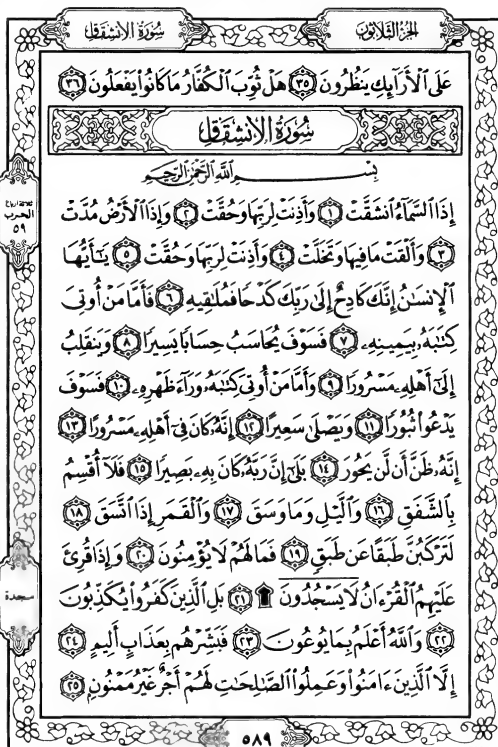 سُورَةُ الِانْشِقَاقِ
الجُزْءُ الثَّلَاثُونَ
عَلَى ٱلْأَرَآئِكِ يَنظُرُونَ ٣٥ هَلْ ثُوِّبَ ٱلْكُفَّارُ مَا كَانُوا۟ يَفْعَلُونَ ٣٦
سُورَةُ الِانْشِقَاقِ
بِسْمِ ٱللَّهِ ٱلرَّحْمَٰنِ ٱلرَّحِيمِ
إِذَا ٱلسَّمَآءُ ٱنشَقَّتْ ١ وَأَذِنَتْ لِرَبِّهَا وَحُقَّتْ ٢ وَإِذَا ٱلْأَرْضُ مُدَّتْ
٣ وَأَلْقَتْ مَا فِيهَا وَتَخَلَّتْ ٤ وَأَذِنَتْ لِرَبِّهَا وَحُقَّتْ ٥ يَٰٓأَيُّهَا
ٱلْإِنسَٰنُ إِنَّكَ كَادِحٌ إِلَىٰ رَبِّكَ كَدْحًا فَمُلَٰقِيهِ ٦ فَأَمَّا مَنْ أُوتِىَ
كِتَٰبَهُۥ بِيَمِينِهِۦ ٧ فَسَوْفَ يُحَاسَبُ حِسَابًا يَسِيرًا ٨ وَيَنقَلِبُ
إِلَىٰٓ أَهْلِهِۦ مَسْرُورًا ٩ وَأَمَّا مَنْ أُوتِىَ كِتَٰبَهُۥ وَرَآءَ ظَهْرِهِۦ ١٠ فَسَوْفَ
يَدْعُوا۟ ثُبُورًا ١١ وَيَصْلَىٰ سَعِيرًا ١٢ إِنَّهُۥ كَانَ فِىٓ أَهْلِهِۦ مَسْرُورًا ١٣
إِنَّهُۥ ظَنَّ أَن لَّن يَحُورَ ١٤ بَلَىٰٓ إِنَّ رَبَّهُۥ كَانَ بِهِۦ بَصِيرًا ١٥ فَلَآ أُقْسِمُ
بِٱلشَّفَقِ ١٦ وَٱلَّيْلِ وَمَا وَسَقَ ١٧ وَٱلْقَمَرِ إِذَا ٱتَّسَقَ ١٨
لَتَرْكَبُنَّ طَبَقًا عَن طَبَقٍ ١٩ فَمَا لَهُمْ لَا يُؤْمِنُونَ ٢٠ وَإِذَا قُرِئَ
عَلَيْهِمُ ٱلْقُرْءَانُ لَا يَسْجُدُونَ ۩ ٢١ بَلِ ٱلَّذِينَ كَفَرُوا۟ يُكَذِّبُونَ
٢٢ وَٱللَّهُ أَعْلَمُ بِمَا يُوعُونَ ٢٣ فَبَشِّرْهُم بِعَذَابٍ أَلِيمٍ ٢٤
إِلَّا ٱلَّذِينَ ءَامَنُوا۟ وَعَمِلُوا۟ ٱلصَّٰلِحَٰتِ لَهُمْ أَجْرٌ غَيْرُ مَمْنُونٍۭ ٢٥
ثلاثة أرباع
الحزب
٥٩
سجدة
٥٨٩